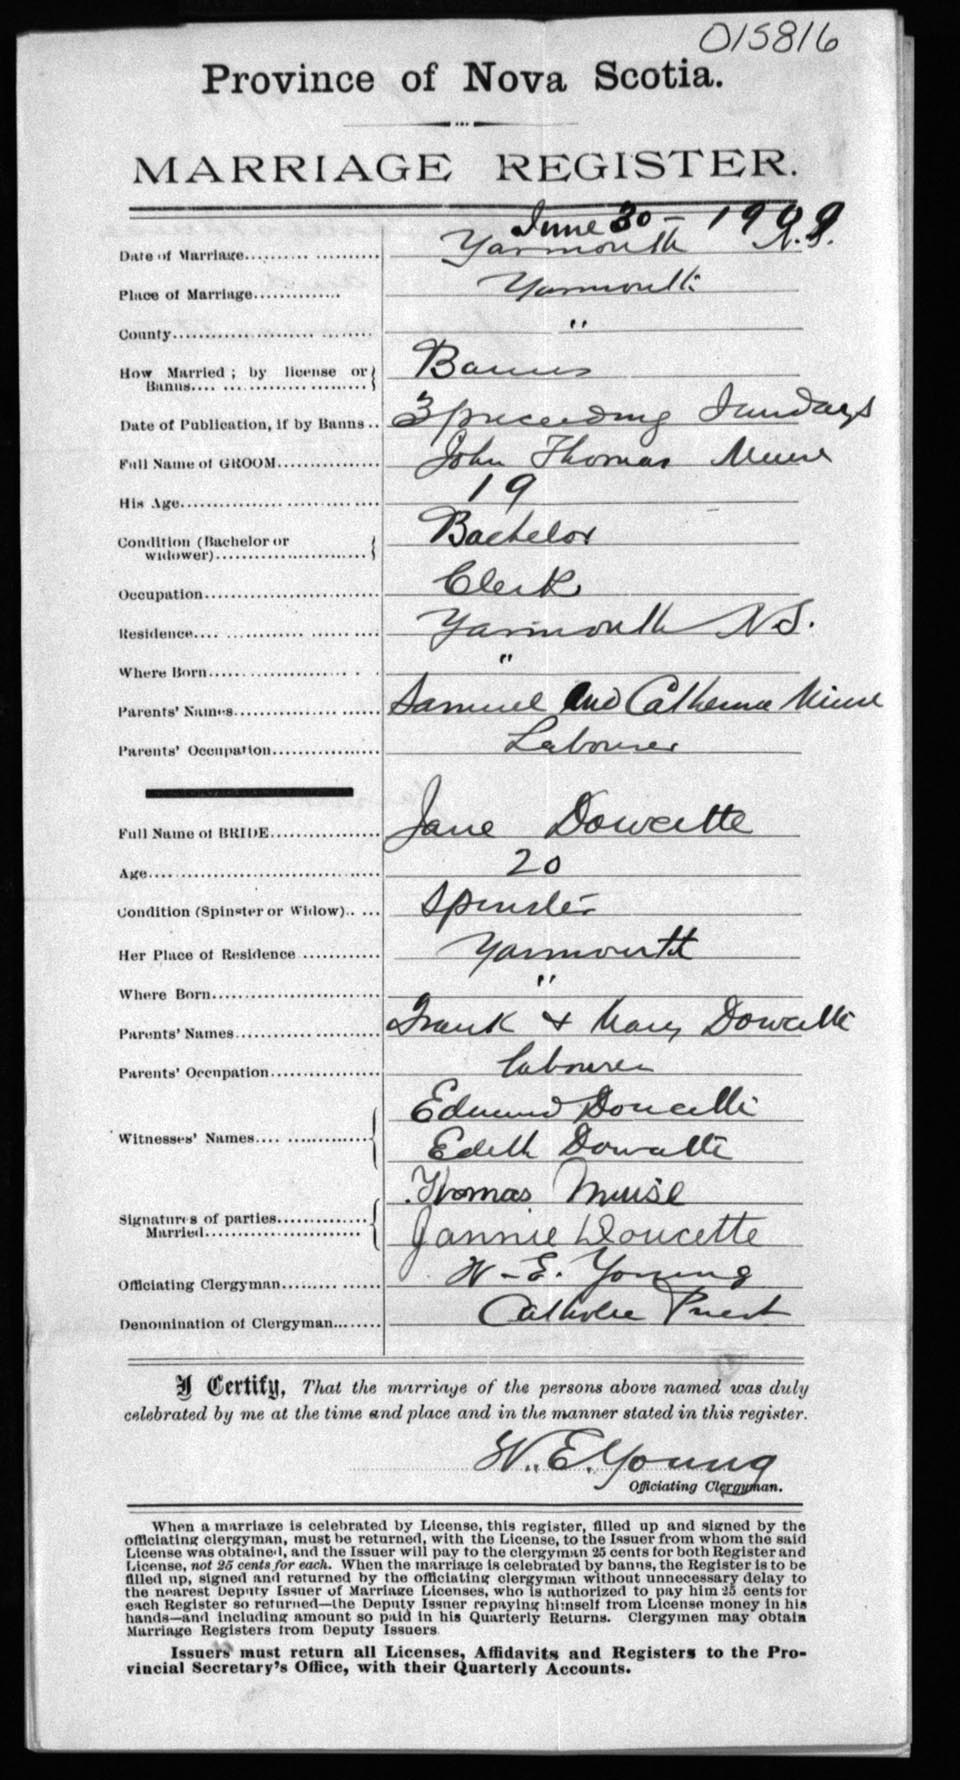 015816
Province of Nova Scotia.
MARRIAGE REGISTER.
June 30 - 1909
Date of Marriage.......... ........... Yarmouth N.S.
Place of Marriage.............. Yarmouth
County...................... ........ "
How Married ; by license or Banns.... ...................... Banns
Date of Publication, if by Banns .. 3 preceeding Sundays
Full Name of GROOM................. John Thomas Muise
His Age................................. 19
Condition (Bachelor or widower)......................... Bachelor
Occupation............................. Clerk
Residence.... ............... ......... Yarmouth N.S.
Where Born..................... . . "
Parents' Names................ ....... Samuel and Catherine Muise
Parents' Occupation.................. Labourer
Full Name of BRIDE.................. Jane Dowcette
Age..................................... 20
Condition (Spinster or Widow).. ... Spinster
Her Place of Residence ............ Yarmouth
Where Born............................ "
Parents' Names........................ Frank & Mary Dowcette
Parents' Occupation.................. labourer
Witnesses' Names.... ............... Edmund Doucette
Edith Dowcette
Signatures of parties.............. Married......................... Thomas Muise
Jannie Doucette
Officiating Clergyman......... ....... W-E. Young
Denomination of Clergyman........ Catholic Priest
I Certify, That the marriage of the persons above named was duly
celebrated by me at the time and place and in the manner stated in this register.
W. E. Young
Officiating Clergyman.
When a marriage is celebrated by License, this register, filled up and signed by the
officiating clergyman, must be returned, with the License, to the Issuer from whom the said
License was obtained, and the Issuer will pay to the clergyman 25 cents for both Register and
License, not 25 cents for each. When the marriage is celebrated by banns, the Register is to be
filled up, signed and returned by the officiating clergyman without unnecessary delay to
the nearest Deputy Issuer of Marriage Licenses, who is authorized to pay him 25 cents for
each Register so returned—the Deputy Issuer repaying himself from License money in his
hands—and including amount so paid in his Quarterly Returns. Clergymen may obtain
Marriage Registers from Deputy Issuers
Issuers must return all Licenses, Affidavits and Registers to the Pro-
vincial Secretary's Office, with their Quarterly Accounts.